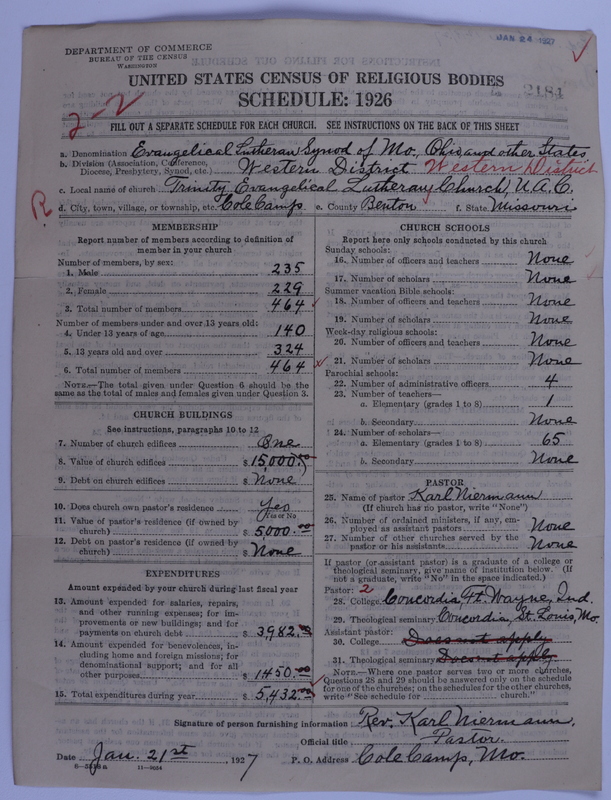 JAN 24 1927
DEPARTMENT OF COMMERCE
BUREAU OF THE CENSUS
WASHINGTON
UNITED STATES CENSUS OF RELIGIOUS BODIES
SCHEDULE: 1926
2184
2-2
FILL OUT A SEPARATE SCHEDULE FOR EACH CHURCH. SEE INSTRUCTIONS ON THE BACK OF THIS SHEET
a. Denomination Evangelical Lutheran Synod of Mo., Ohio and other States
b. Division (Association, Conference, Diocese, Presbytery, Synod, etc.) Western District Western District
c. Local name of church Trinity Evangelical Lutheran Church, U.A.C.
R
d. City, town, village, or township, etc. Cole Camp e. County Benton f. State Missouri
MEMBERSHIP
Report number of members according to definition of member in your church
Number of members, by sex:
1. Male 235
2. Female 229
3. Total number of members 464
Number of members under and over 13 years old:
4. Under 13 years of age 140
5. 13 years old and over 324
6. Total number of members 464
NOTE.—The total given under Question 6 should be the same as the total of males and females given under Question 3.
CHURCH BUILDINGS
See instructions, paragraphs 10 to 12
7. Number of church edifices One
8. Value of church edifices $ 15,000.00
9. Debt on church edifices $ None
10. Does church own pastor's residence Yes
Yes or No
11. Value of pastor's residence (if owned by church) $ 5,000.00
12. Debt on pastor's residence (if owned by church) $ None
EXPENDITURES
Amount expended by your church during last fiscal year
13. Amount expended for salaries, repairs, and other running expenses; for improvements or new buildings; and for payments on church debt $ 3982.00
14. Amount expended for benevolences, including home and foreign missions; for denominational support; and for all other purposes $ 1450.00
15. Total expenditures during year $ 5,432.00
CHURCH SCHOOLS
Report here only schools conducted by this church
Sunday schools:
16. Number of officers and teachers None
17. Number of scholars None
Summer vacation Bible schools:
18. Number of officers and teachers None
19. Number of scholars None
Week-day religious schools:
20. Number of officers and teachers None
21. Number of scholars None
Parochial schools:
22. Number of administrative officers 4
23. Number of teachers—
a. Elementary (grades 1 to 8) 1
b. Secondary None
24. Number of scholars—
a. Elementary (grades 1 to 8) 65
b. Secondary None
PASTOR
25. Name of pastor Karl Niermann
(If church has no pastor, write "None")
26. Number of ordained ministers, if any, employed as assistant pastors None
27. Number of other churches served by the pastor or his assistants None
If pastor (or assistant pastor) is a graduate of a college or theological seminary, give name of institution below. (If not a graduate, write "No" in the space indicated.)
Pastor: 2
28. College Concordia, Ft. Wayne, Ind.
29. Theological seminary Concordia, St. Louis, Mo.
Assistant pastor:
30. College Does not apply
31. Theological seminary Does not apply
NOTE.—Where one pastor serves two or more churches, Questions 28 and 29 should be answered only on the schedule for one of the churches; on the schedules for the other churches, write "See schedule for church."
Signature of person furnishing information Rev. Karl Niermann,
Official title Pastor.
Date Jan. 21st, 1927 P. O. Address Cole Camp, Mo.
11—9684